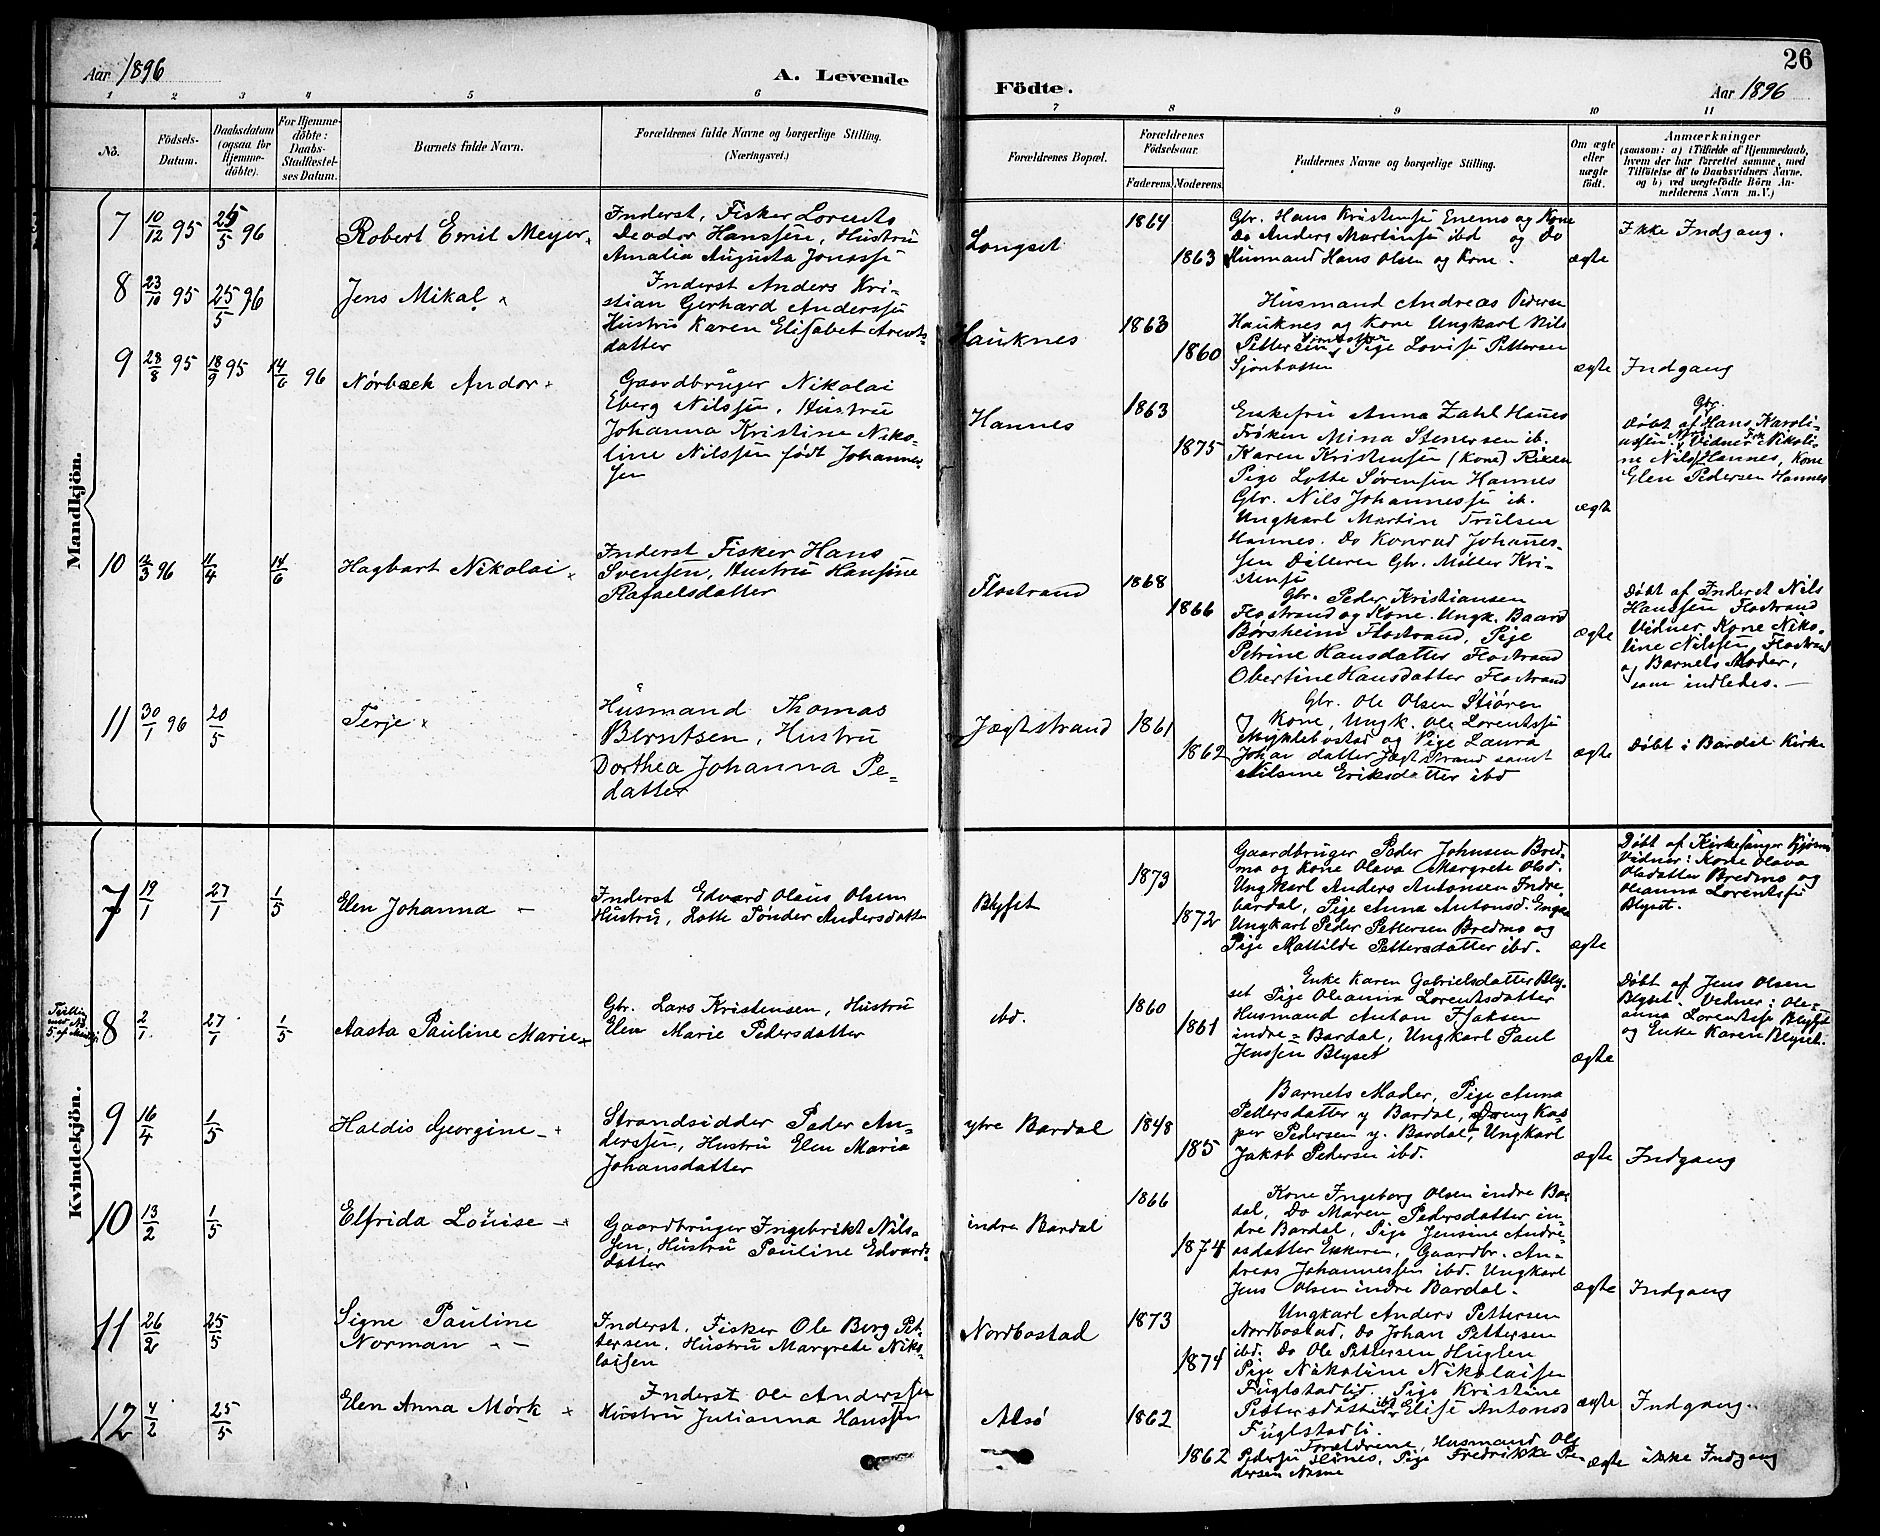 Aar 1896
A. Levende
Födte.
26
Aar 1896
1 2 3 4 5 6 7 8 9 10 11
No.
Födsels-
Datum.
Daabsdatum
(ogsaa for
Hjemme-
döbte).
For Hjemme-
döbte:
Daabs-
Stadfæstel-
ses Datum.
Barnets fulde Navn.
Forældrenes fulde Navne og borgerlige Stilling.
(Næringsvei.)
Forældrenes Bopæl.
Forældrenes
Födselsaar.
Faderens. Moderens.
Faddernes Navne og borgerlige Stilling.
Om ægte
eller
uægte
födt.
Anmærkninger
(saasom: a) i Tilfælde af Hjemmedaab,
hvem der har forrettet samme, med
Tilföielse af to Daabsvidners Navne.
og b) ved uægtefödte Börn An-
melderens Navn m.V.)
Mandkjön.
7 10/12 95 25/5 96
Robert Emil Meyer
Inderst, Fisker Lorents
Deodor Hanssen, Hustru
Amalia Augusta Jonasse
Longset
1864
1863
Gbr. Hans Kristensen Enemo og Kone
Do Anders Martinsen ibd og Do
Husmand Hans Olsen og Kone.
ægte
Ikke Indgang.
8 23/10 95 25/5 96
Jens Mikal
Inderst Anders Kri-
stian Gerhard Anderssen
Hustru Karen Elisabet Arents-
datter
Hauknes
1863
1860
Husmand Andreas Pedersen
Hauknes og Kone Ungkarl Nils
Pettersen Pige Lovise Pettersen
Sjonbotten
ægte
Indgang
9 28/8 95 18/9 95 14/6 96
Nørbech Andor
Gaardbruger Nikolai
Eberg Nilssen, Hustru
Johanna Kristine Niko-
line Nilssen født Johannes-
sen
Hannes
1863
1875
Enkefru Anna Zahl Hannes
Frøken Mina Stenersen ib.
Karen Kristensen (Kone)
Pige Lotte Sørensen Hannes
Gbr. Nils Johannessen ib.
Ungkarl Martin Trulsen
Hannes. Do Konrad Johannes-
sen Gbr. Møller Kri-
stensen
ægte
Gbr.
Døbt af Hans Karoli-
ussen. Vidner Nikoli-
ne Nilss Hannes, Kone
Elen Pedersen Hannes
10 12/3 96 11/4 14/6
Hagbart Nikolai
Inderst Fisker Hans
Svensen, Hustru Hansine
Rafaelsdatter
Flostrand
1868
1866
Gbr. Peder Kristiansen
Flostrand og Kone. Ungk. Baard
Børsheim Flostrand, Pige
Petrine Hansdatter Flostrand
Obertine Hansdatter Flostrand
ægte
Døbt af Inderst Nils
Hanssen Flostrand
Vidner Kone Niko-
line Nilssen Flostrand
og Barnets Moder,
som indledes.
11 30/1 96 20/5
Terje
Husmand Thomas
Berntsen, Hustru
Dorthea Johanna Pe-
datter
Jægtstrand
1861
1862
Gbr. Ole Olsen Stiøren
og Kone, Ungk. Ole Lorentssen
Myklebostad og Pige Laura
Johan datter Jægtstrand samt
Nilsine Eriksdatter ibd
ægte
Døbt i Bardal Kirke
Kvindekjön.
7 19/1 27/1 1/5
Elen Johanna
Inderst Edvard Olaus Olsen
Hustru, Lotte Tønder Andersdatter
Blyset
1873
1872
Gaardbruger Peder Johnsen Bred-
mo og Kone Olava Margrete Olsd.
Ungkarl Anders Antonsen Indre
bardal, Pige Anna Antonsd.
Ungkarl Peder Pettersen Bredmo og
Pige Mathilde Pettersdatter ibd.
ægte
Døbt af Kirkesanger
Vidner: Kone Olava
Olsdatter Bredmo og
Oleanna Lorentsse
Blyset.
Tvilling
med No
5 af Mandkj.
8 2/1 27/1 1/5
Aasta Pauline Marie
Gbr. Lars Kristensen, Hustru
Elen Marie Pedersdatter
ibd.
1860
1861
Enke Karen Gabrielsdatter Bly-
set Pige Oleanna Lorentsdatter
Husmand Anton Isaksen
indre-Bardal, Ungkarl Paul
Jenssen Blyset
ægte
Døbt af Jens Olsen
Blyset. Vidner: Ole-
anna Lorentsse Blyset
og Enke Karen Blyset.
9 16/4 1/5
Haldis Georgine
Strandsidder Peder An-
derssen, Hustru Elen Maria
Johansdatter
ytre Bardal
1848
185
Barnets Moder, Pige Anna
Pedersdatter y Bardal, Dreng Kas-
per Pedersen y. Bardal, Ungkarl
Jakob Pedersen ibd.
ægte
Indgang
10 13/2 1/5
Elfrida Louise
Gaardbruger Ingebrikt Nils-
sen, Hustru Pauline Edvards-
datter
indre Bardal
1866
1874
Kone Ingeborg Olsen indre Bar-
dal, Do Maren Pedersdatter in-
dre Bardal, Pige Jensine Andre-
asdatter Enkeren, Gaardbr. An-
dreas Johannessen ibd. Ungkarl
Jens Olsen indre Bardal.
ægte
Indgang
11 26/2 25/5
Signe Pauline
Norman
Inderst. Fisker Ole Berg Pet-
tersen, Hustru Margrete Niko-
laisen
Nordbostad
1873
1874
Ungkarl Anders Pettersen
Nordbostad, Do Johan Pettersen
ibd. Do Ole Pettersen Huglen
Pige Nikoline Nikolaisen
Fuglstadlid. Pige Kristine
Pettersdatter ibd Elise Antonsd
Fuglstadli.
ægte
Indgang.
12 4/2 25/5
Elen Anna Mørk
Inderst Ole Anderssen
Hustru Julianna Hanssen
Alsø
1862
1862
Forældrene, Husmand Ole
Pedersen Pige Fredrikke Pe-
dersen
ægte
ikke Indgang